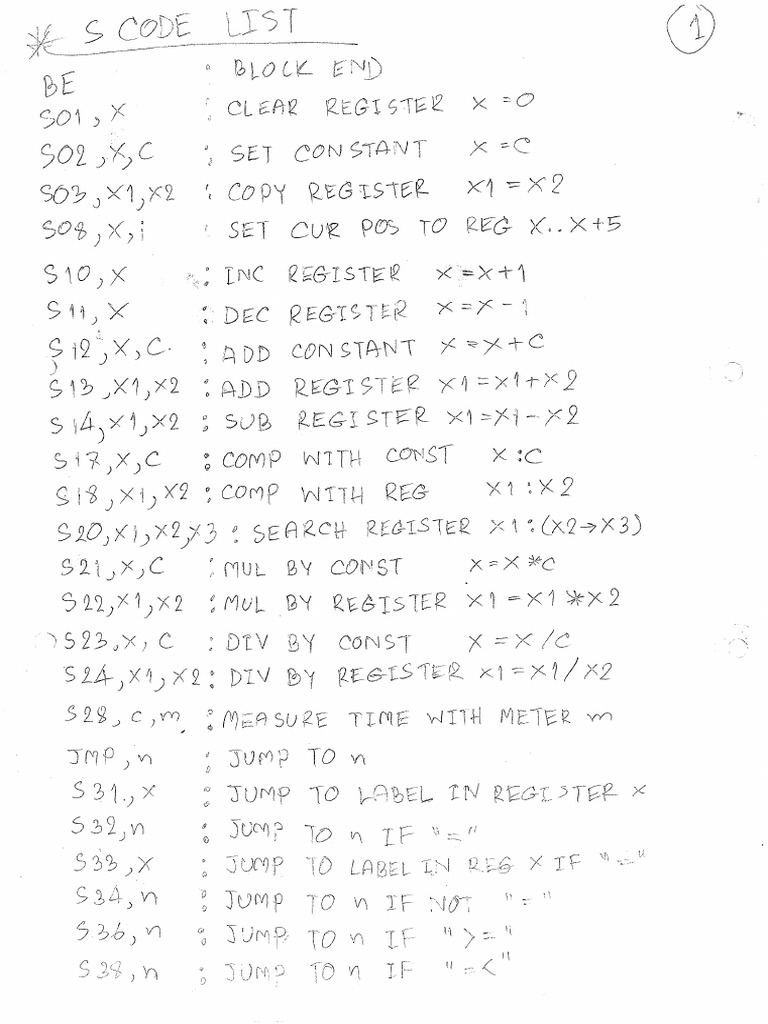 * S CODE LIST
1
BE : BLOCK END
S01, X : CLEAR REGISTER X = 0
S02, X, C : SET CONSTANT X = C
S03, X1, X2 : COPY REGISTER X1 = X2
S08, X, i : SET CUR POS TO REG X..X+5
S10, X : INC REGISTER X = X+1
S11, X : DEC REGISTER X = X-1
S12, X, C. : ADD CONSTANT X = X+C
S13, X1, X2 : ADD REGISTER X1 = X1+X2
S14, X1, X2 : SUB REGISTER X1 = X1-X2
S17, X, C : COMP WITH CONST X : C
S18, X1, X2 : COMP WITH REG X1 : X2
S20, X1, X2, X3 : SEARCH REGISTER X1 : (X2→X3)
S21, X, C : MUL BY CONST X = X * C
S22, X1, X2 : MUL BY REGISTER X1 = X1 * X2
S23, X, C : DIV BY CONST X = X / C
S24, X1, X2 : DIV BY REGISTER X1 = X1 / X2
S28, C, m : MEASURE TIME WITH METER m
JMP, n : JUMP TO n
S31., X : JUMP TO LABEL IN REGISTER X
S32, n : JUMP TO n IF "="
S33, X : JUMP TO LABEL IN REG X IF "="
S34, n : JUMP TO n IF NOT "="
S36, n : JUMP TO n IF ">="
S38, n : JUMP TO n IF "=<"